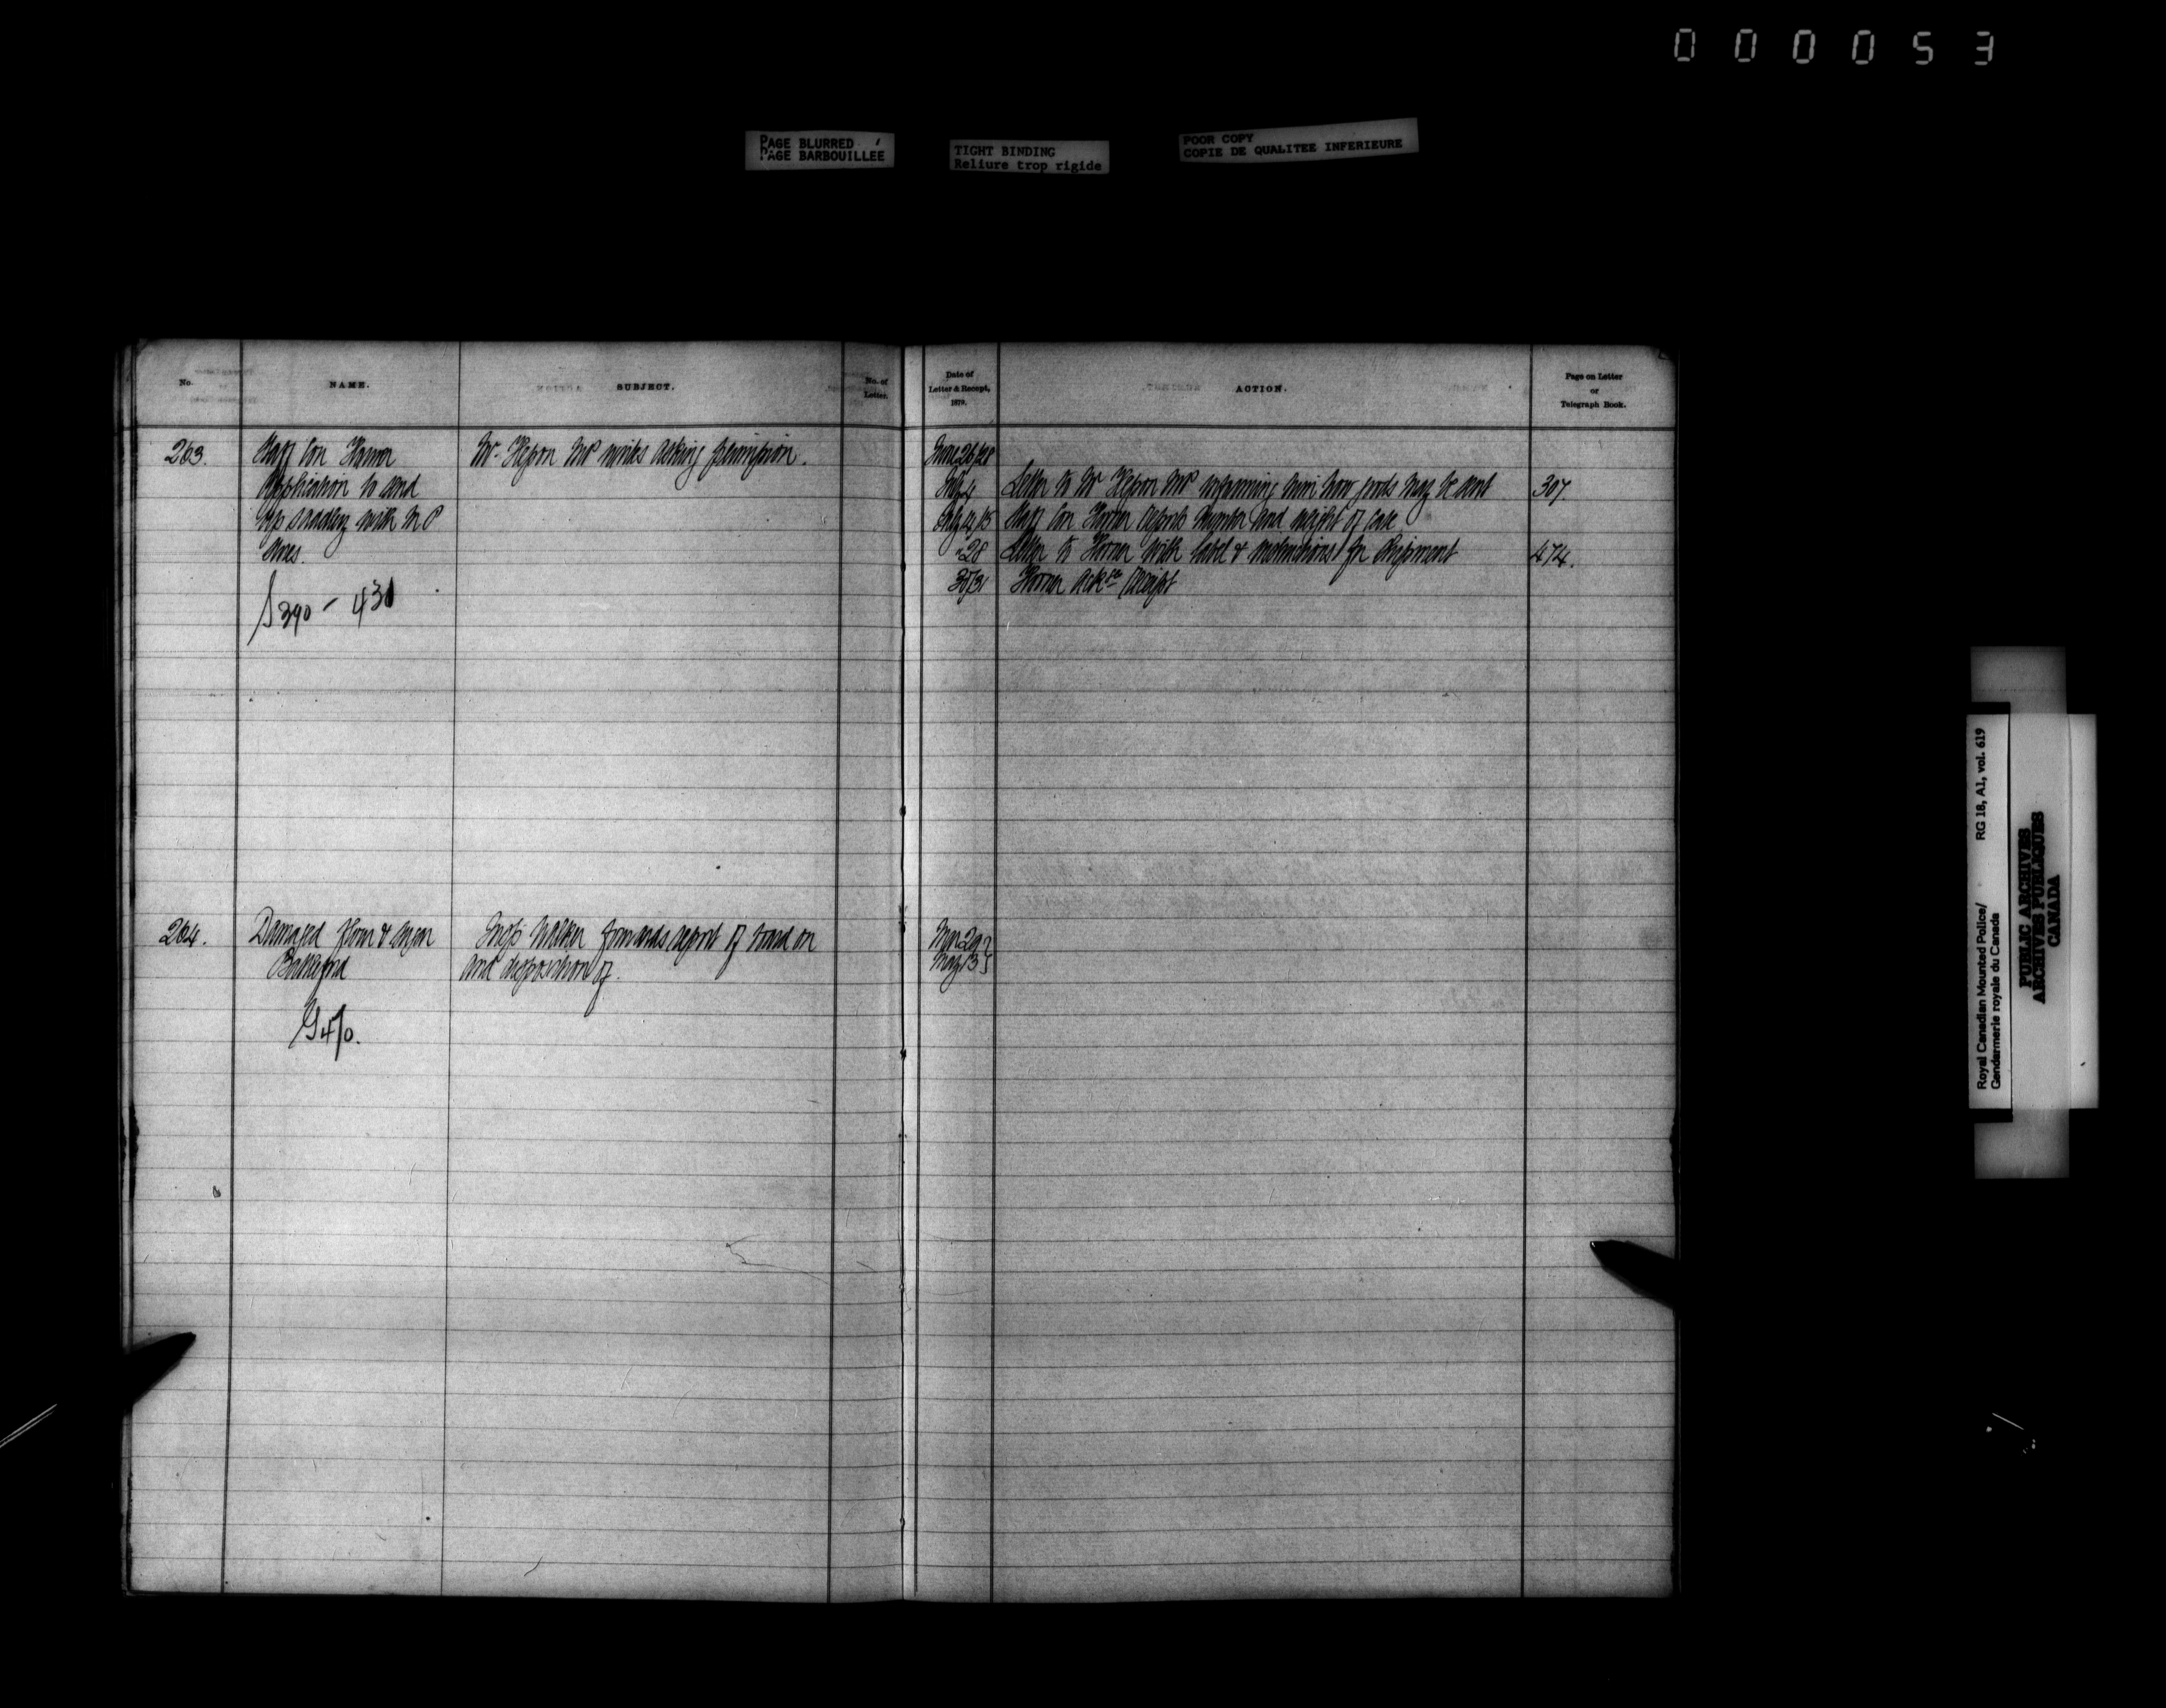 000053
PAGE BLURRED
PAGE BARBOUILLEE
TIGHT BINDING
Reliure trop rigide
POOR COPY
COPIE DE QUALITEE INFERIEURE
No.
NAME.
SUBJECT.
No. of
Letter.
Date of
Letter & Receipt,
1879.
ACTION.
Page on Letter
or
Telegraph Book.
263.
Staff Con Horner
Application to send
up saddlery with M P
stores.
390 - 431
Mr. Hesson MP writes asking permission.
June 26/28
July 4
Letter to Mr Hesson MP informing him how goods may be sent
307
July 14/15
Staff Con Horner reports number and weight of case
" 28
Letter to Horner with label & instructions for shipment
474.
30/31
Horner ack receipt
264.
Damaged flour & sugar
Battleford
G 470.
Insp Walker forwards report of board on
and disposition of.
Mar 29
May 13
Royal Canadian Mounted Police/
Gendarmerie royale du Canada
RG 18, A1, vol. 619
PUBLIC ARCHIVES
ARCHIVES PUBLIQUES
CANADA